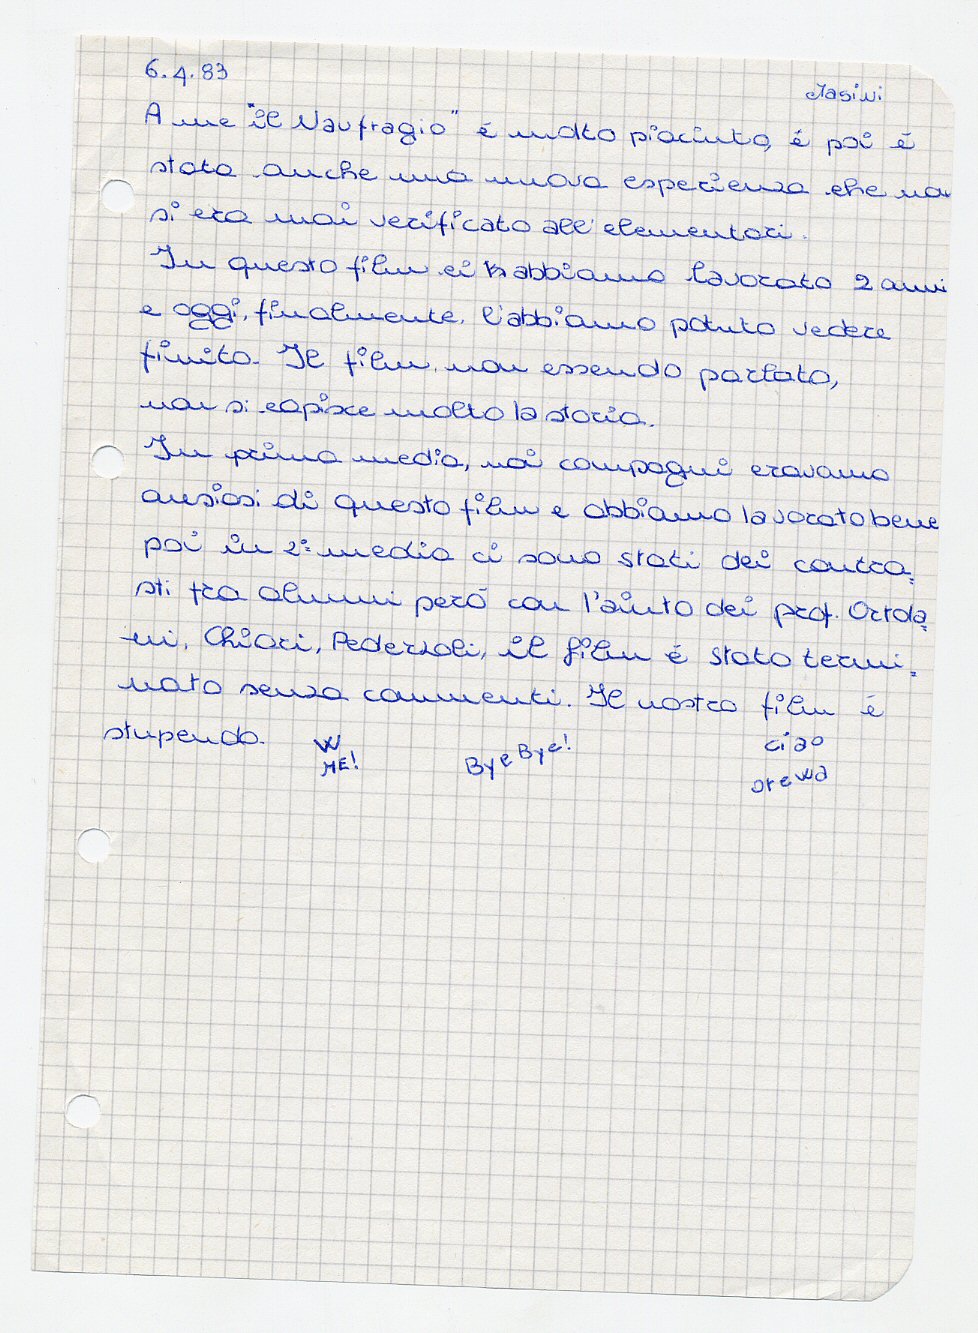 6.4.83
Masini
A me "il Naufragio" é molto piaciuto, é poi é
stata anche una nuova esperienza che non
si era mai verificato all'elementari.
In questo film ci abbiamo lavorato 2 anni
e oggi, finalmente, l'abbiamo potuto vedere
finito. Il film, non essendo parlato,
non si capisce molto la storia.
In prima media, noi compagni eravamo
ansiosi di questo film e abbiamo lavorato bene
poi in 2ª media ci sono stati dei contra=
sti tra alunni peró con l'aiuto dei prof. Ortola=
ni, Chiari, Pederzoli, il film é stato termi=
nato senza commenti. Il nostro film é
stupendo.
W
ME!
Bye Bye!
ciao